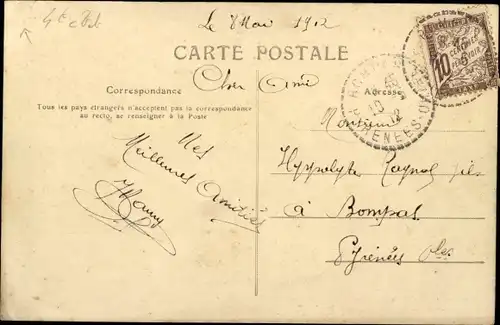 Le 8 Mai 1912
CARTE POSTALE
Cher Ami
Correspondance
Tous les pays étrangers n'acceptent pas la correspondance
au recto, se renseigner à la Poste.
Adresse
Mes
Meilleures Amitiés
Monsieur
Hyppolyte fils
à Bompas
Pyrénées Ples
10
CENTIMES
À PERCEVOIR